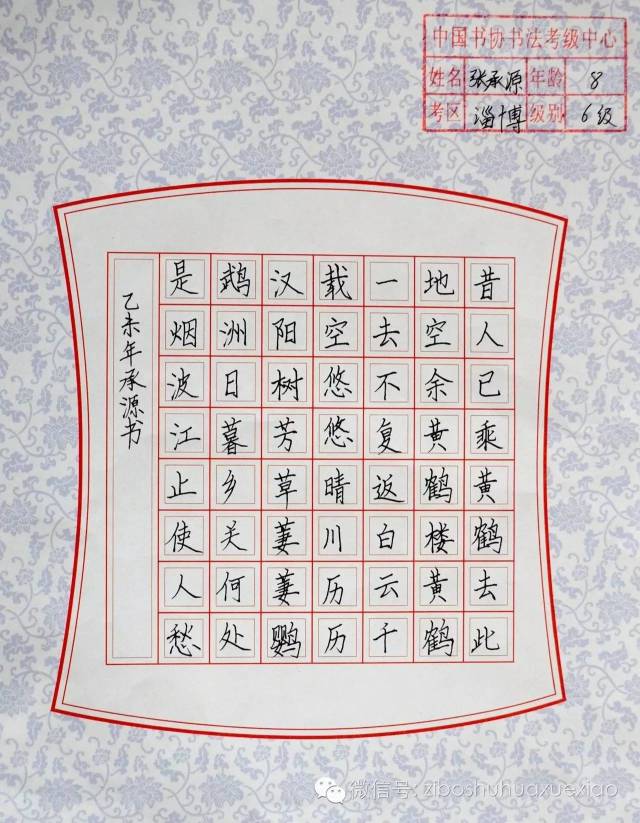 中国书协书法考级中心
姓名 张承源 年龄 8
考区 淄博 级别 6级
昔人已乘黄鹤去此
地空余黄鹤楼黄鹤
一去不复返白云千
载空悠悠晴川历历
汉阳树芳草萋萋鹦
鹉洲日暮乡关何处
是烟波江止使人愁
乙未年承源书
微信号: ziboshuhuaxuexiao